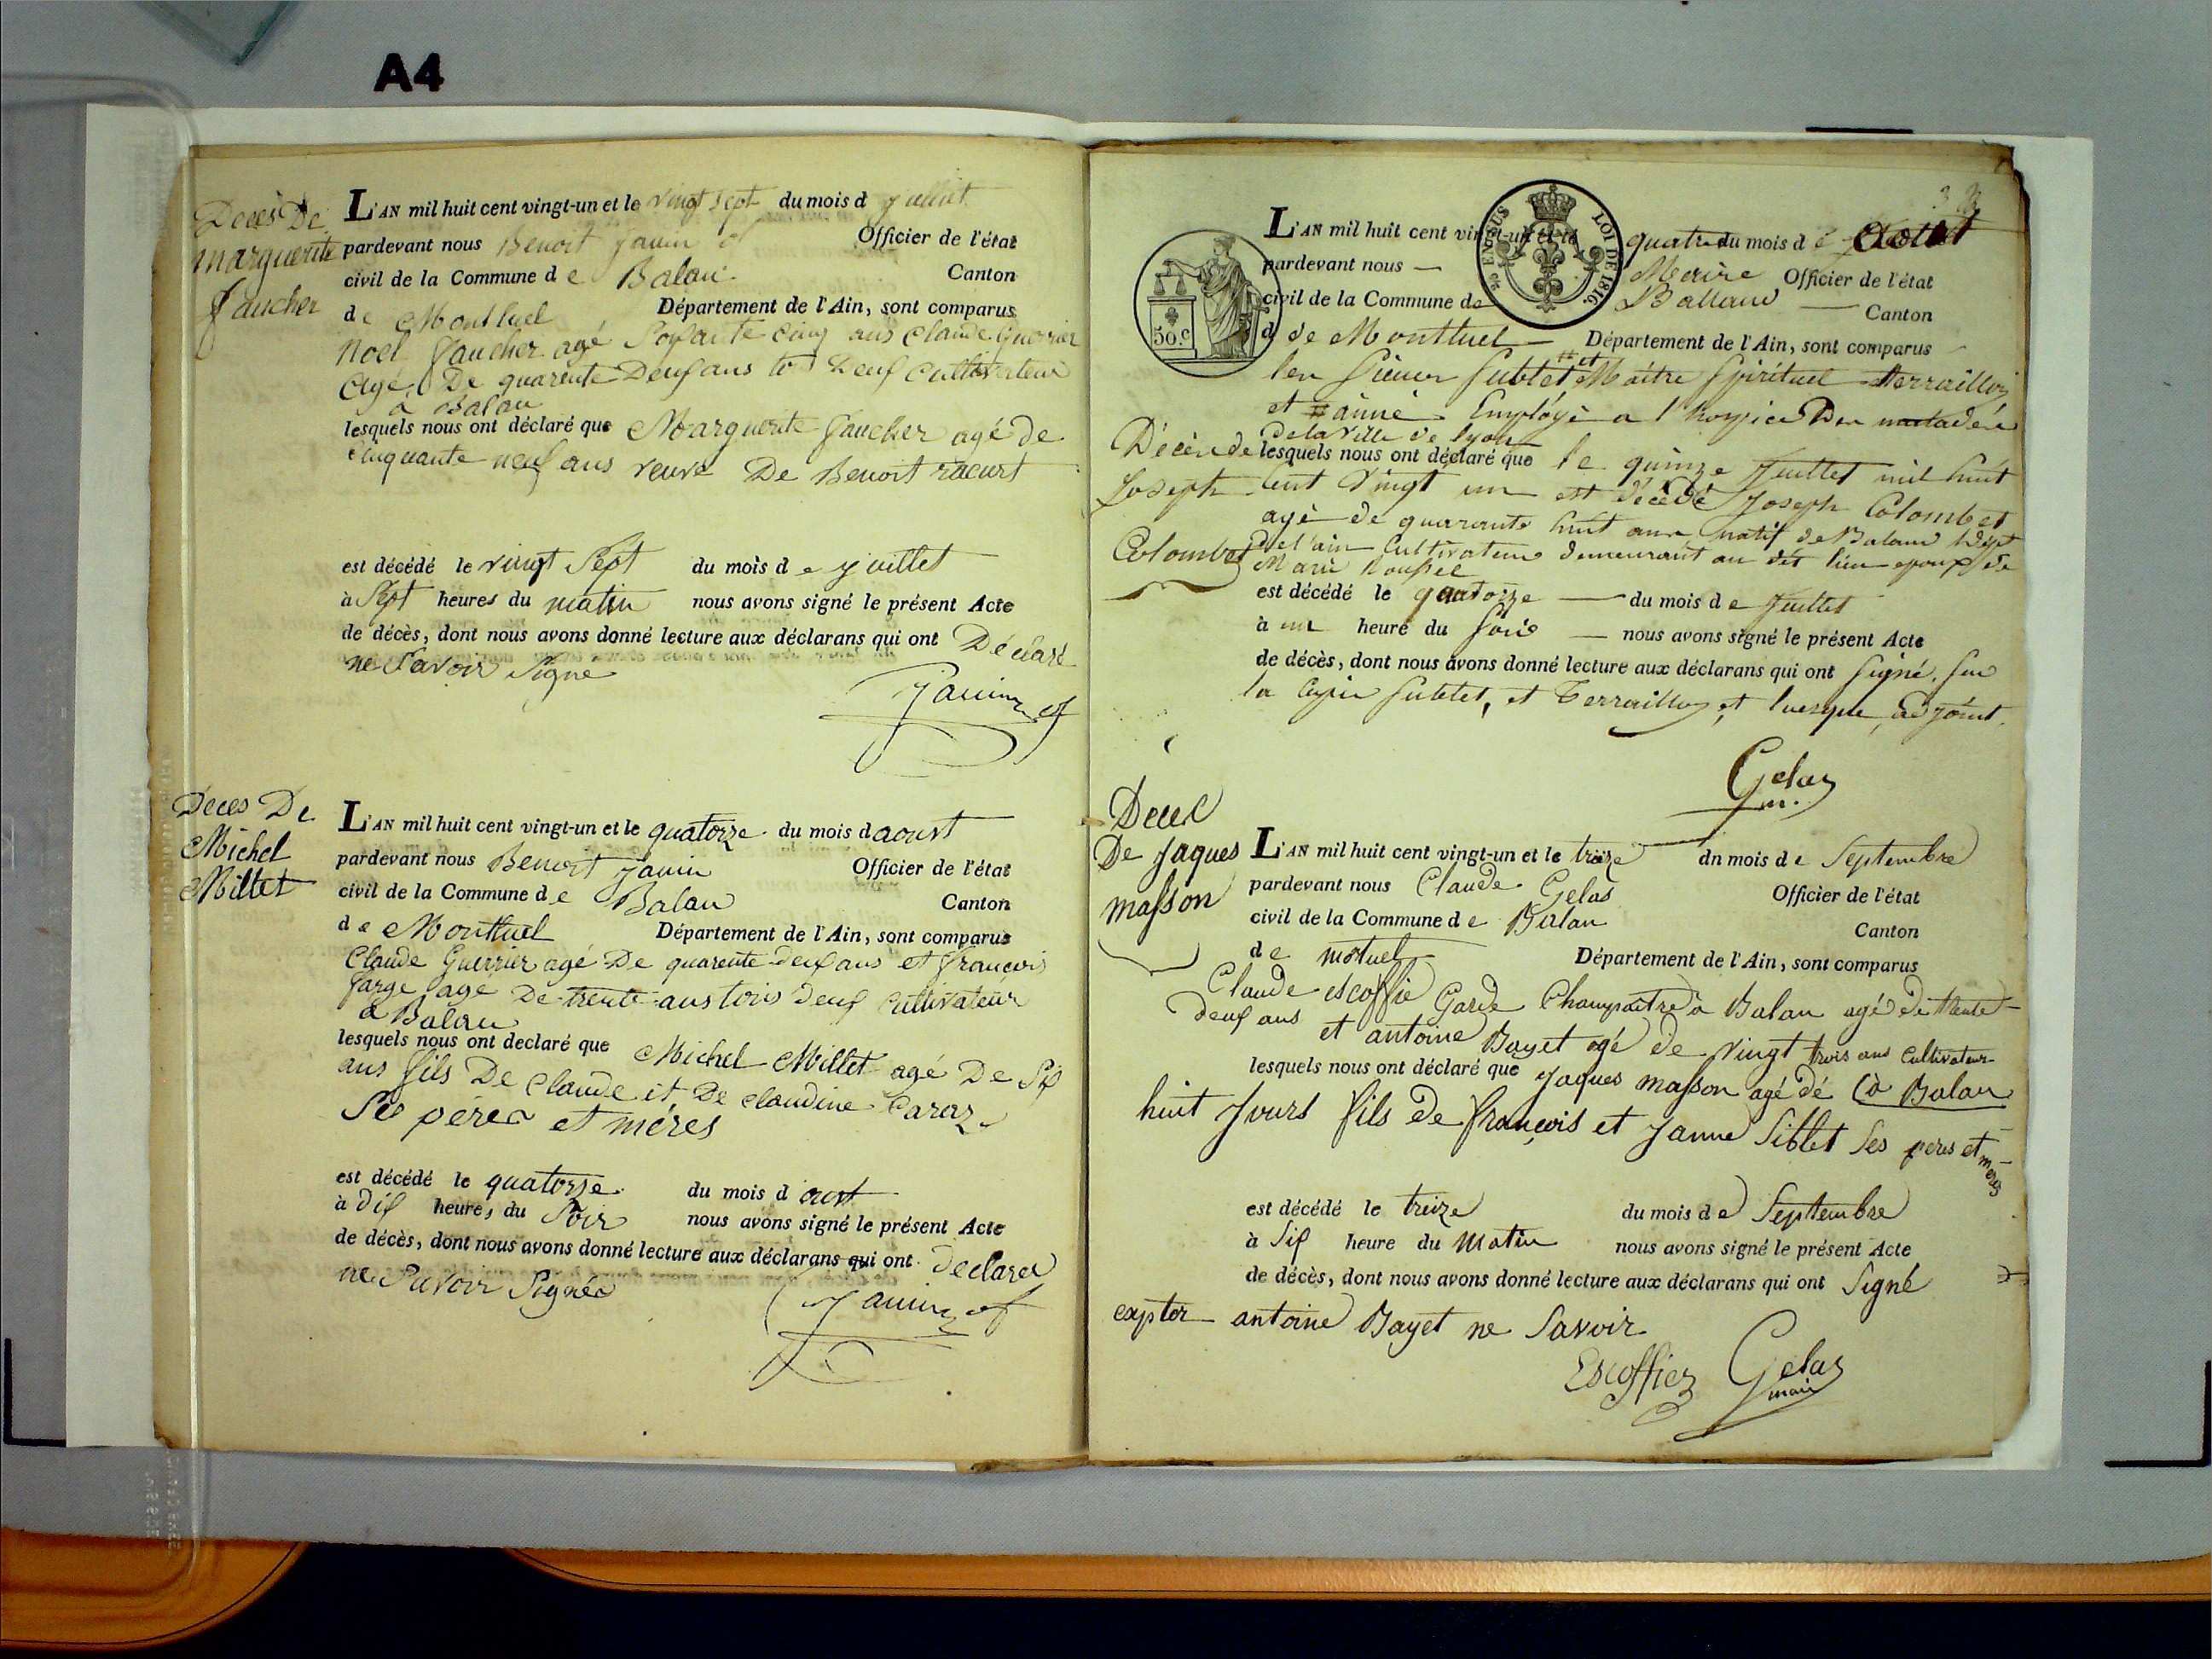 A4
Décès De
marguerite
faucher
L'AN mil huit cent vingt-un et le vingt sept du mois d juillet
pardevant nous Benoit Janin of Officier de l'état
civil de la Commune de Balan Canton
de Montluel Département de l'Ain, sont comparus
Noel faucher agé Soisante cinq ans Claude Guerrier
agé De quarente Deuf ans tos Deuf Cultivateur
à Balan
lesquels nous ont déclaré que Marguerite faucher agé de
cinquante neuf ans veuve De Benoit racurt
est décédé le vingt Sept du mois de juillet
à Sept heures du matin nous avons signé le présent Acte
de décès, dont nous avons donné lecture aux déclarans qui ont Déclaré
ne Savoir Signe
Janin of
Deces De
Michel
Millet
L'AN mil huit cent vingt-un et le quatorze du mois d aoust
pardevant nous Benoit Janin Officier de l'état
civil de la Commune de Balan Canton
de Montluel Département de l'Ain, sont comparus
Claude Guerrier agé De quarente deuf ans et françois
farge agé De trente ans tous Deuf Cultivateur
a Balan
lesquels nous ont declaré que Michel Millet agé De Sif
ans fils De Claude et De claudine Caraz
Se péres et méres
est décédé le quatorze du mois d oust
à dif heures du Soir nous avons signé le présent Acte
de décès, dont nous avons donné lecture aux déclarans qui ont declarer
ne Savoir Signée
Janin of
50.c
EN SUS LOI DE 1816.
L'AN mil huit cent vingt-un et le quatre du mois de Aout
pardevant nous — Maire Officier de l'état
civil de la Commune de Ballan — Canton
d de Montluel — Département de l'Ain, sont comparus
les Sieur Sublet et Maitre Spirituel terraillon
et ainné Employé a l'hospice Des
de la ville de lyon
Décès de
Joseph
Colombet
lesquels nous ont déclaré que le quinze Juillet mil huit
Cent vingt un est décédé Joseph Colombet
agé de quarante huit ans natif de Balan Dépt
de l'ain Cultivateur demeurant au dit lieu epoux de
Marie
est décédé le quatorze — du mois de Juillet
à un heure du Soir — nous avons signé le présent Acte
de décès, dont nous avons donné lecture aux déclarans qui ont Signé, Sur
la Copie Sublet, et Terraillon, et luesque, adjoint.
Gelas
m.
Decec
De Jaques
masson
L'AN mil huit cent vingt-un et le treize du mois de Septembre
pardevant nous Claude Gelas Officier de l'état
civil de la Commune de Balan Canton
de motuel Département de l'Ain, sont comparus
Claude escoffié Garde Champaitre à Balan agé de trente
deuf ans et antoine Bayet agé de vingt trois ans Cultivateur
à Balan
lesquels nous ont déclaré que Jaques masson agé dé
huit Jours fils de françois et Janne Siblet Ses peres et meres
est décédé le treize du mois de Septembre
à Sif heure du matin nous avons signé le présent Acte
de décès, dont nous avons donné lecture aux déclarans qui ont Signé
expter antoine Bayet ne Savoir
Escoffier Gelas
mair